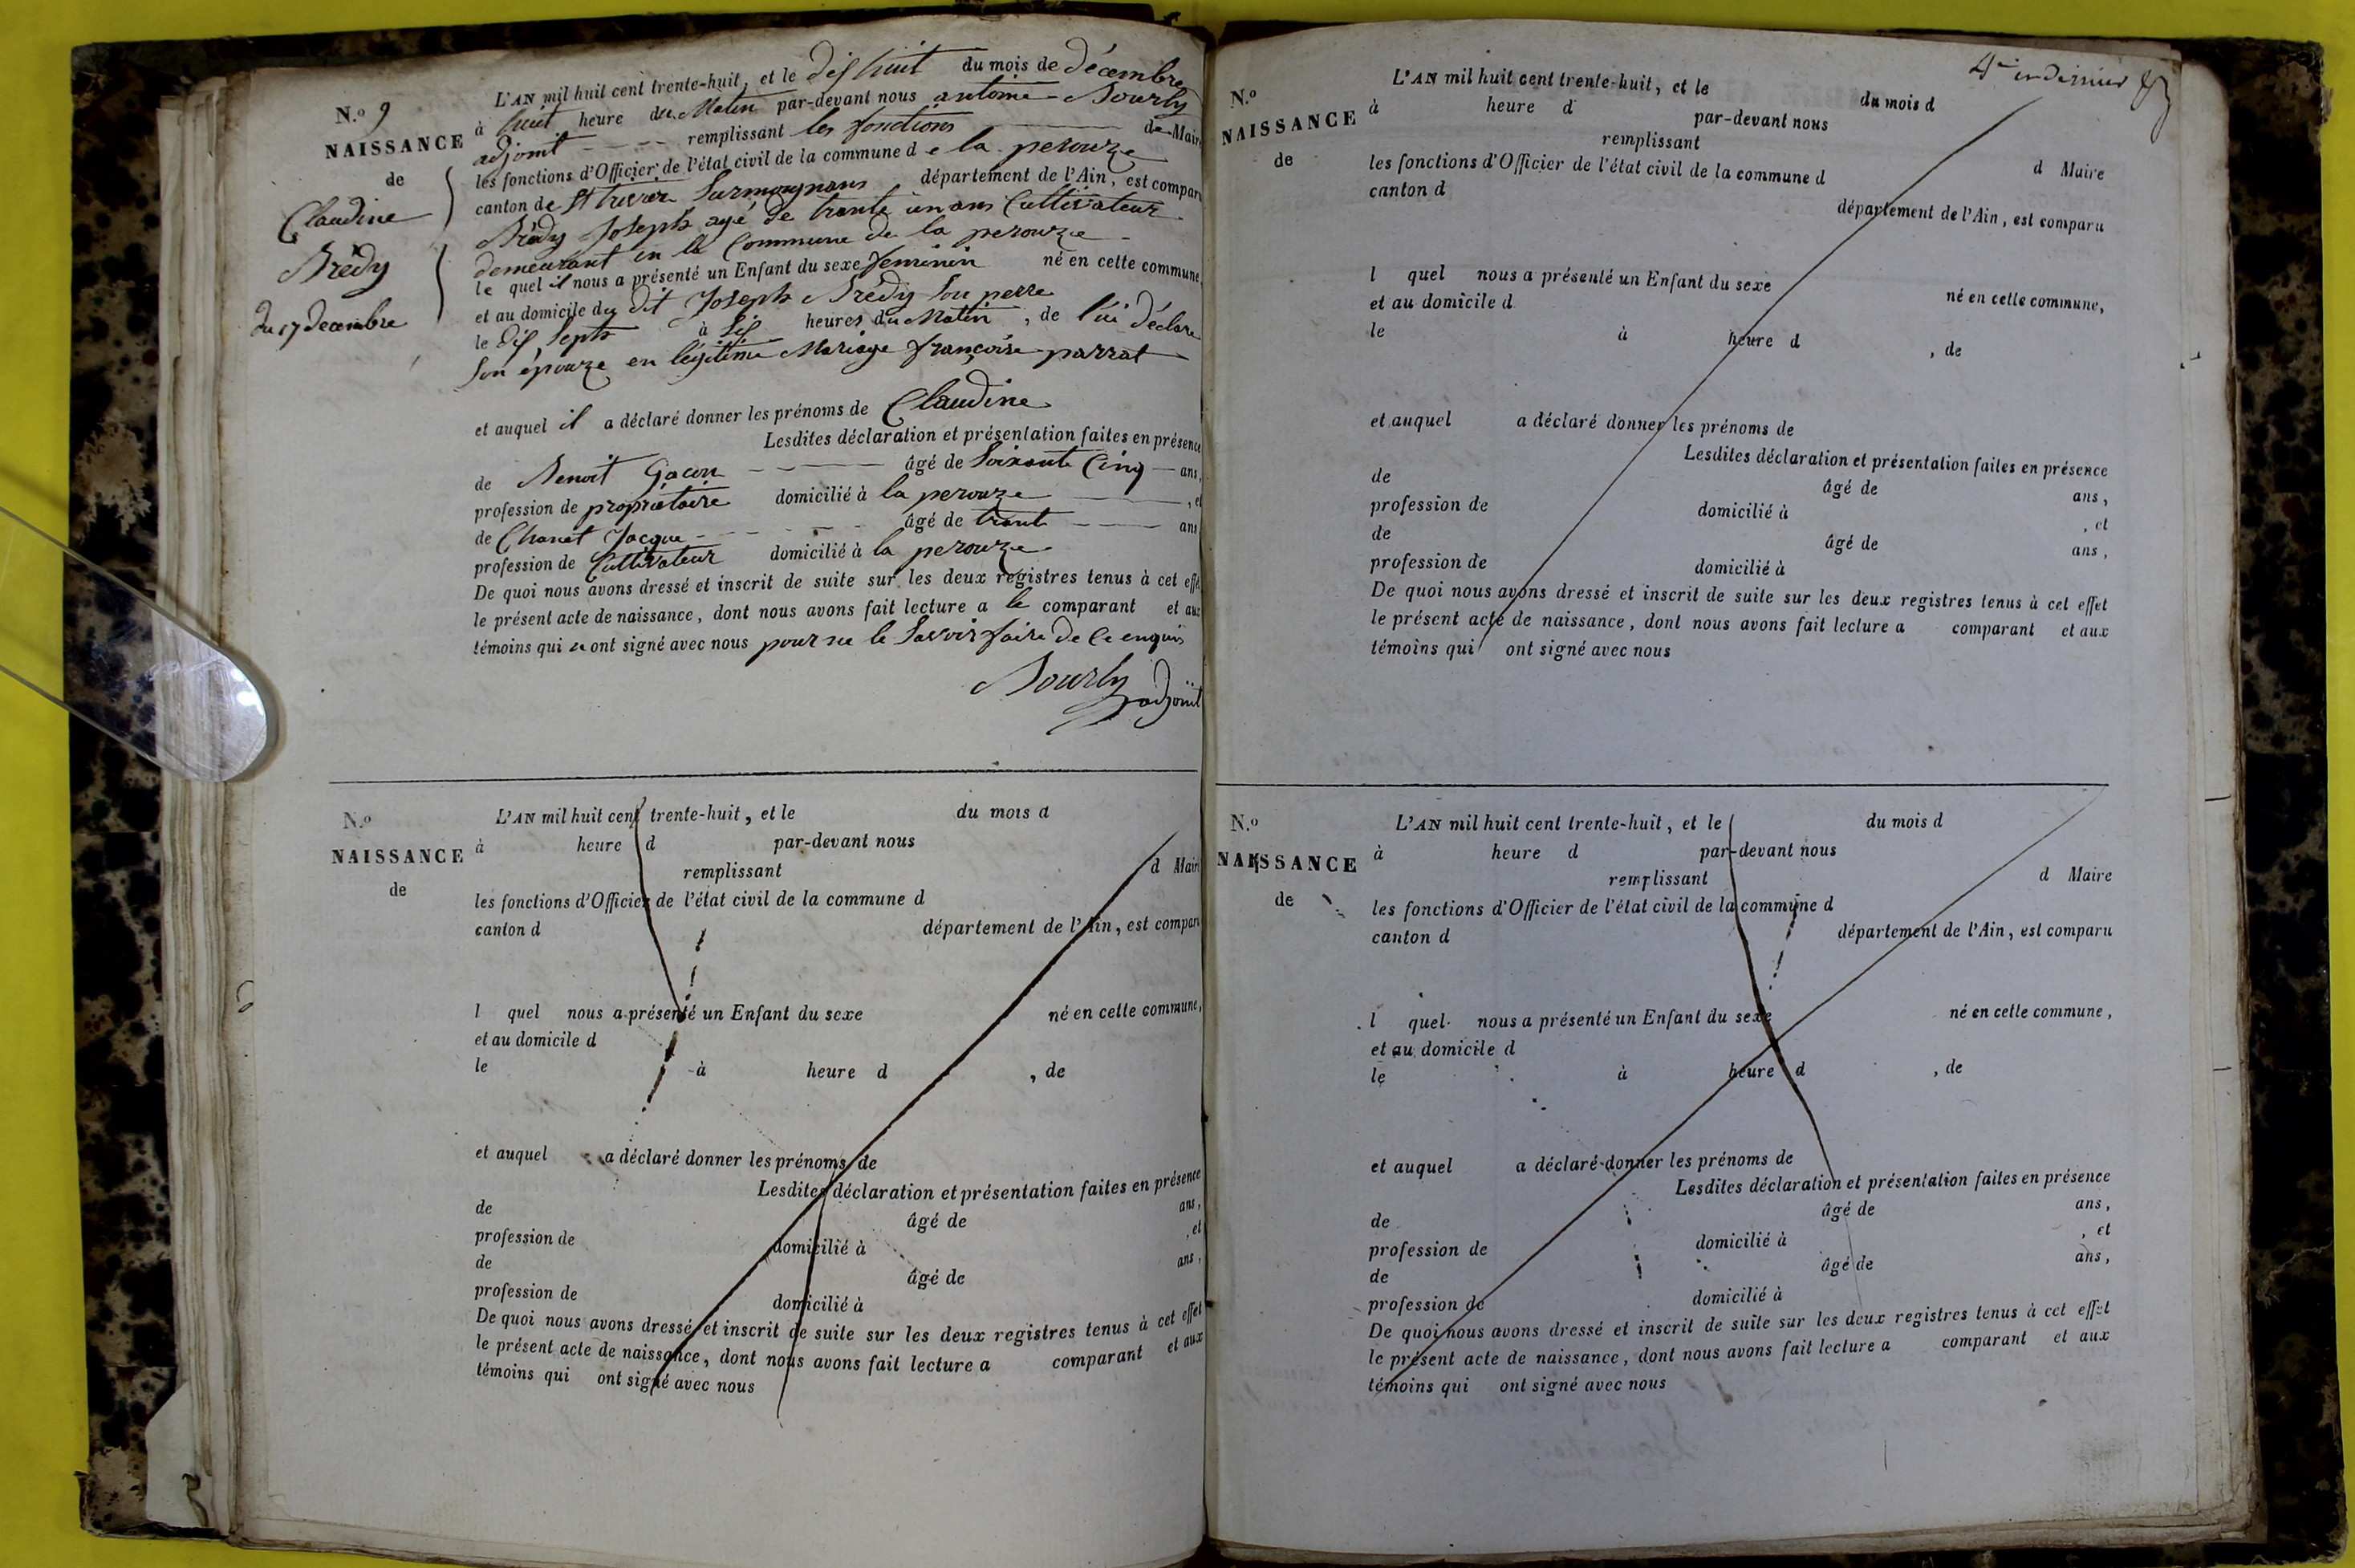 N.o 9
NAISSANCE
de
Claudine
Brédy
du 17 decembre
L'AN mil huit cent trente-huit, et le dix huit du mois de décembre
à huit heure du Matin par-devant nous antoine Bourly
adjoint remplissant les fonctions de Maire
les fonctions d'Officier de l'état civil de la commune de la perouze
canton de St trivier Surmoignans département de l'Ain, est comparu
Brédy Joseph agé de trante un ans Cultivateur
demeurant en la Commune de la perouze
le quel il nous a présenté un Enfant du sexe feminin né en cette commune,
et au domicile du dit Joseph Brédy Son perre
le dix septs à six heures du Matin, de lui déclare
Son épouze en légitime Mariage françoise parrat
et auquel il a déclaré donner les prénoms de Claudine
Lesdites déclaration et présentation faites en présence
de Benoit Gacon âgé de Soixante Cinq ans,
profession de propriétaire domicilié à la perouze, et
de Chanet Jacque âgé de trante ans
profession de Cultivateur domicilié à la perouze
De quoi nous avons dressé et inscrit de suite sur les deux registres tenus à cet effet
le présent acte de naissance, dont nous avons fait lecture a le comparant et aux
témoins qui n ont signé avec nous pour ne le Savoir faire de Ce enquis
Bourly
adjoint
N.o
NAISSANCE
de
L'AN mil huit cent trente-huit, et le du mois d
à heure d par-devant nous
remplissant d Maire
les fonctions d'Officier de l'état civil de la commune d
canton d département de l'Ain, est comparu
l quel nous a présenté un Enfant du sexe né en cette commune,
et au domicile d
le à heure d , de
et auquel a déclaré donner les prénoms de
Lesdites déclaration et présentation faites en présence
de âgé de ans,
profession de domicilié à , et
de âgé de ans,
profession de domicilié à
De quoi nous avons dressé et inscrit de suite sur les deux registres tenus à cet effet
le présent acte de naissance, dont nous avons fait lecture a comparant et aux
témoins qui ont signé avec nous
4e et dernier
N.o
NAISSANCE
de
L'AN mil huit cent trente-huit, et le du mois d
à heure d par-devant nous
remplissant d Maire
les fonctions d'Officier de l'état civil de la commune d
canton d département de l'Ain, est comparu
l quel nous a présenté un Enfant du sexe
et au domicile d né en cette commune,
le à heure d , de
et auquel a déclaré donner les prénoms de
Lesdites déclaration et présentation faites en présence
de âgé de ans,
profession de domicilié à , et
de âgé de ans,
profession de domicilié à
De quoi nous avons dressé et inscrit de suite sur les deux registres tenus à cet effet
le présent acte de naissance, dont nous avons fait lecture a comparant et aux
témoins qui ont signé avec nous
N.o
NAISSANCE
de
L'AN mil huit cent trente-huit, et le du mois d
à heure d par-devant nous
remplissant d Maire
les fonctions d'Officier de l'état civil de la commune d
canton d département de l'Ain, est comparu
l quel nous a présenté un Enfant du sexe né en cette commune,
et au domicile d
le à heure d , de
et auquel a déclaré donner les prénoms de
Lesdites déclaration et présentation faites en présence
de âgé de ans,
profession de domicilié à , et
de âgé de ans,
profession de domicilié à
De quoi nous avons dressé et inscrit de suite sur les deux registres tenus à cet effet
le présent acte de naissance, dont nous avons fait lecture a comparant et aux
témoins qui ont signé avec nous